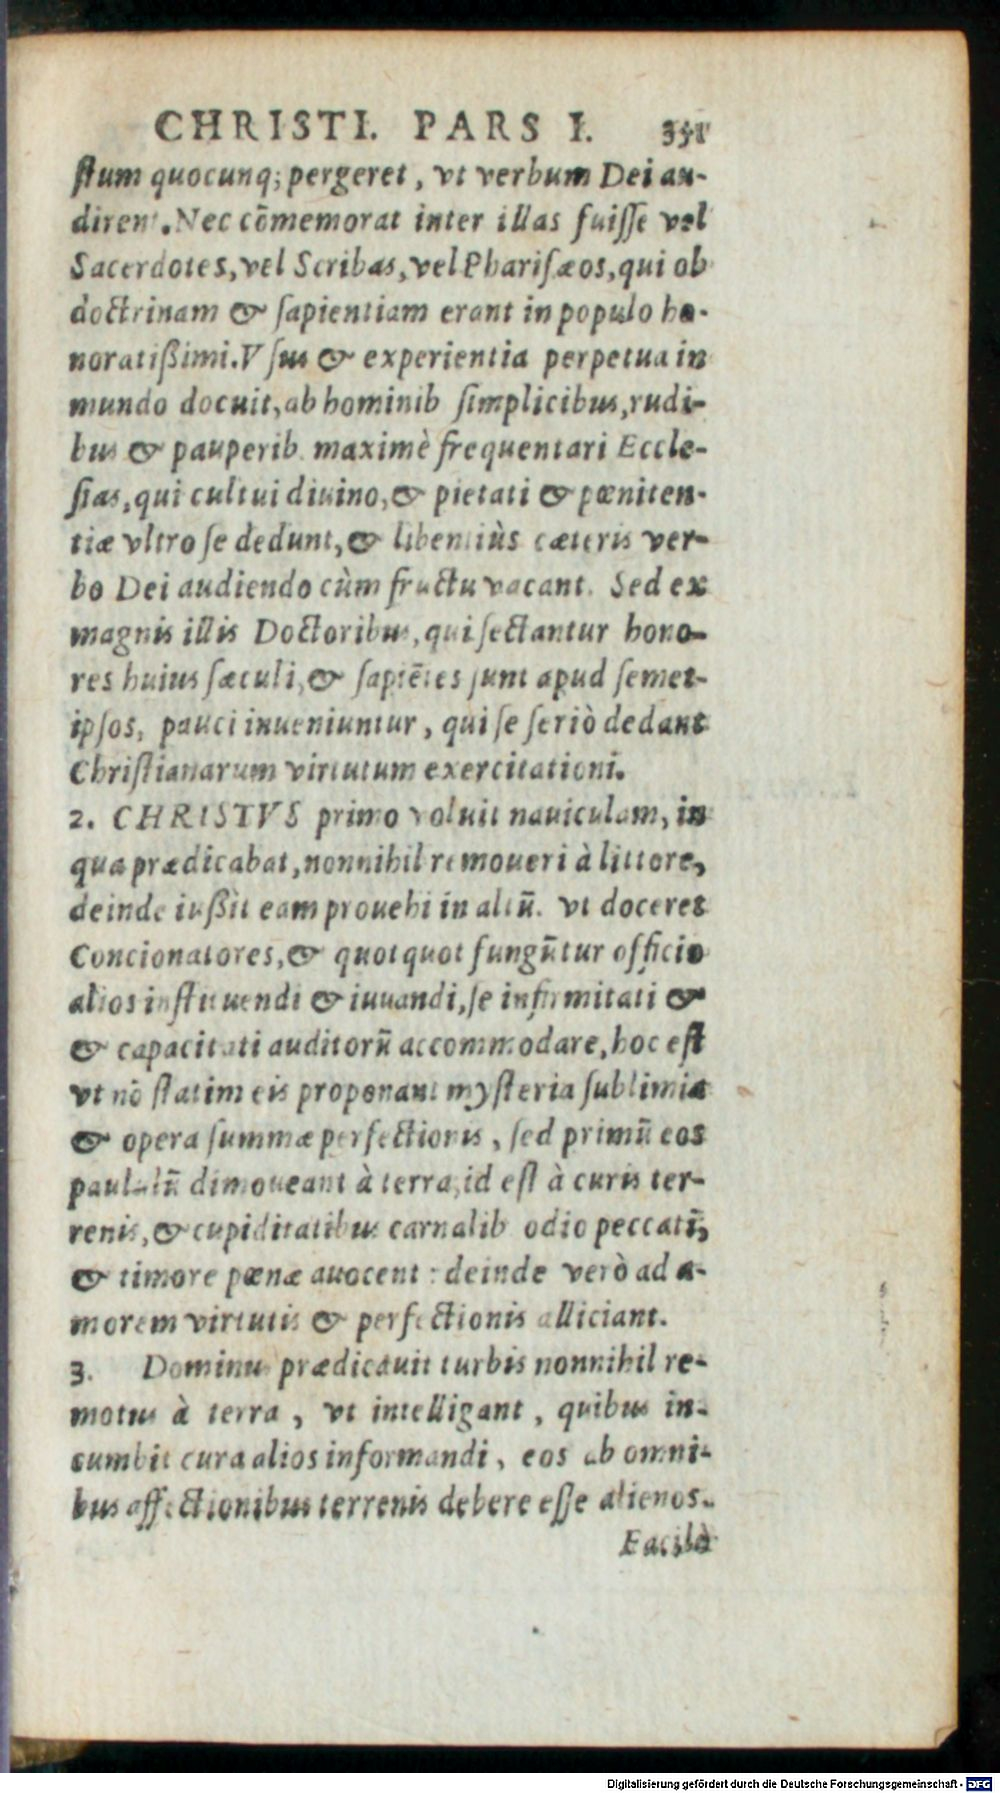 CHRISTI. PARS I. 351
ſtum quocunq; pergeret, vt verbum Dei au-
dirent. Nec cōmemorat inter illas fuiſſe vel
Sacerdotes, vel Scribas, vel Phariſæos, qui ob
doctrinam & ſapientiam erant in populo ho-
noratißimi. Vſus & experientia perpetua in
mundo docuit, ab hominib ſimplicibus, rudi-
bus & pauperib. maximè frequentari Eccle-
ſias, qui cultui diuino, & pietati & pœniten-
tiæ vltro ſe dedunt, & libentiùs cæteris ver-
bo Dei audiendo cùm fructu vacant. Sed ex
magnis illis Doctoribus, qui ſectantur hono-
res huius ſæculi, & ſapiētes ſunt apud ſemet-
ipſos, pauci inueniuntur, qui ſe ſeriò dedant
Chriſtianarum virtutum exercitationi.
2. CHRISTVS primo voluit nauiculam, in
qua prædicabat, nonnihil remoueri à littore,
deinde iußit eam prouehi in altū. vt doceret
Concionatores, & quotquot fungūtur officio
alios inſtituendi & iuuandi, ſe infirmitati &
& capacitati auditorū accommodare, hoc eſt
vt nō ſtatim eis proponant myſteria ſublimia
& opera ſummæ perfectionis, ſed primū eos
paululū dimoueant à terra, id eſt à curis ter-
renis, & cupiditatibus carnalib odio peccati,
& timore pœnæ auocent: deinde verò ad a-
morem virtutis & perfectionis alliciant.
3. Dominus prædicauit turbis nonnihil re-
motus à terra, vt intelligant, quibus in-
cumbit cura alios informandi, eos ab omni-
bus affectionibus terrenis debere eſſe alienos.
Facilè
Digitalisierung gefördert durch die Deutsche Forschungsgemeinschaft - DFG